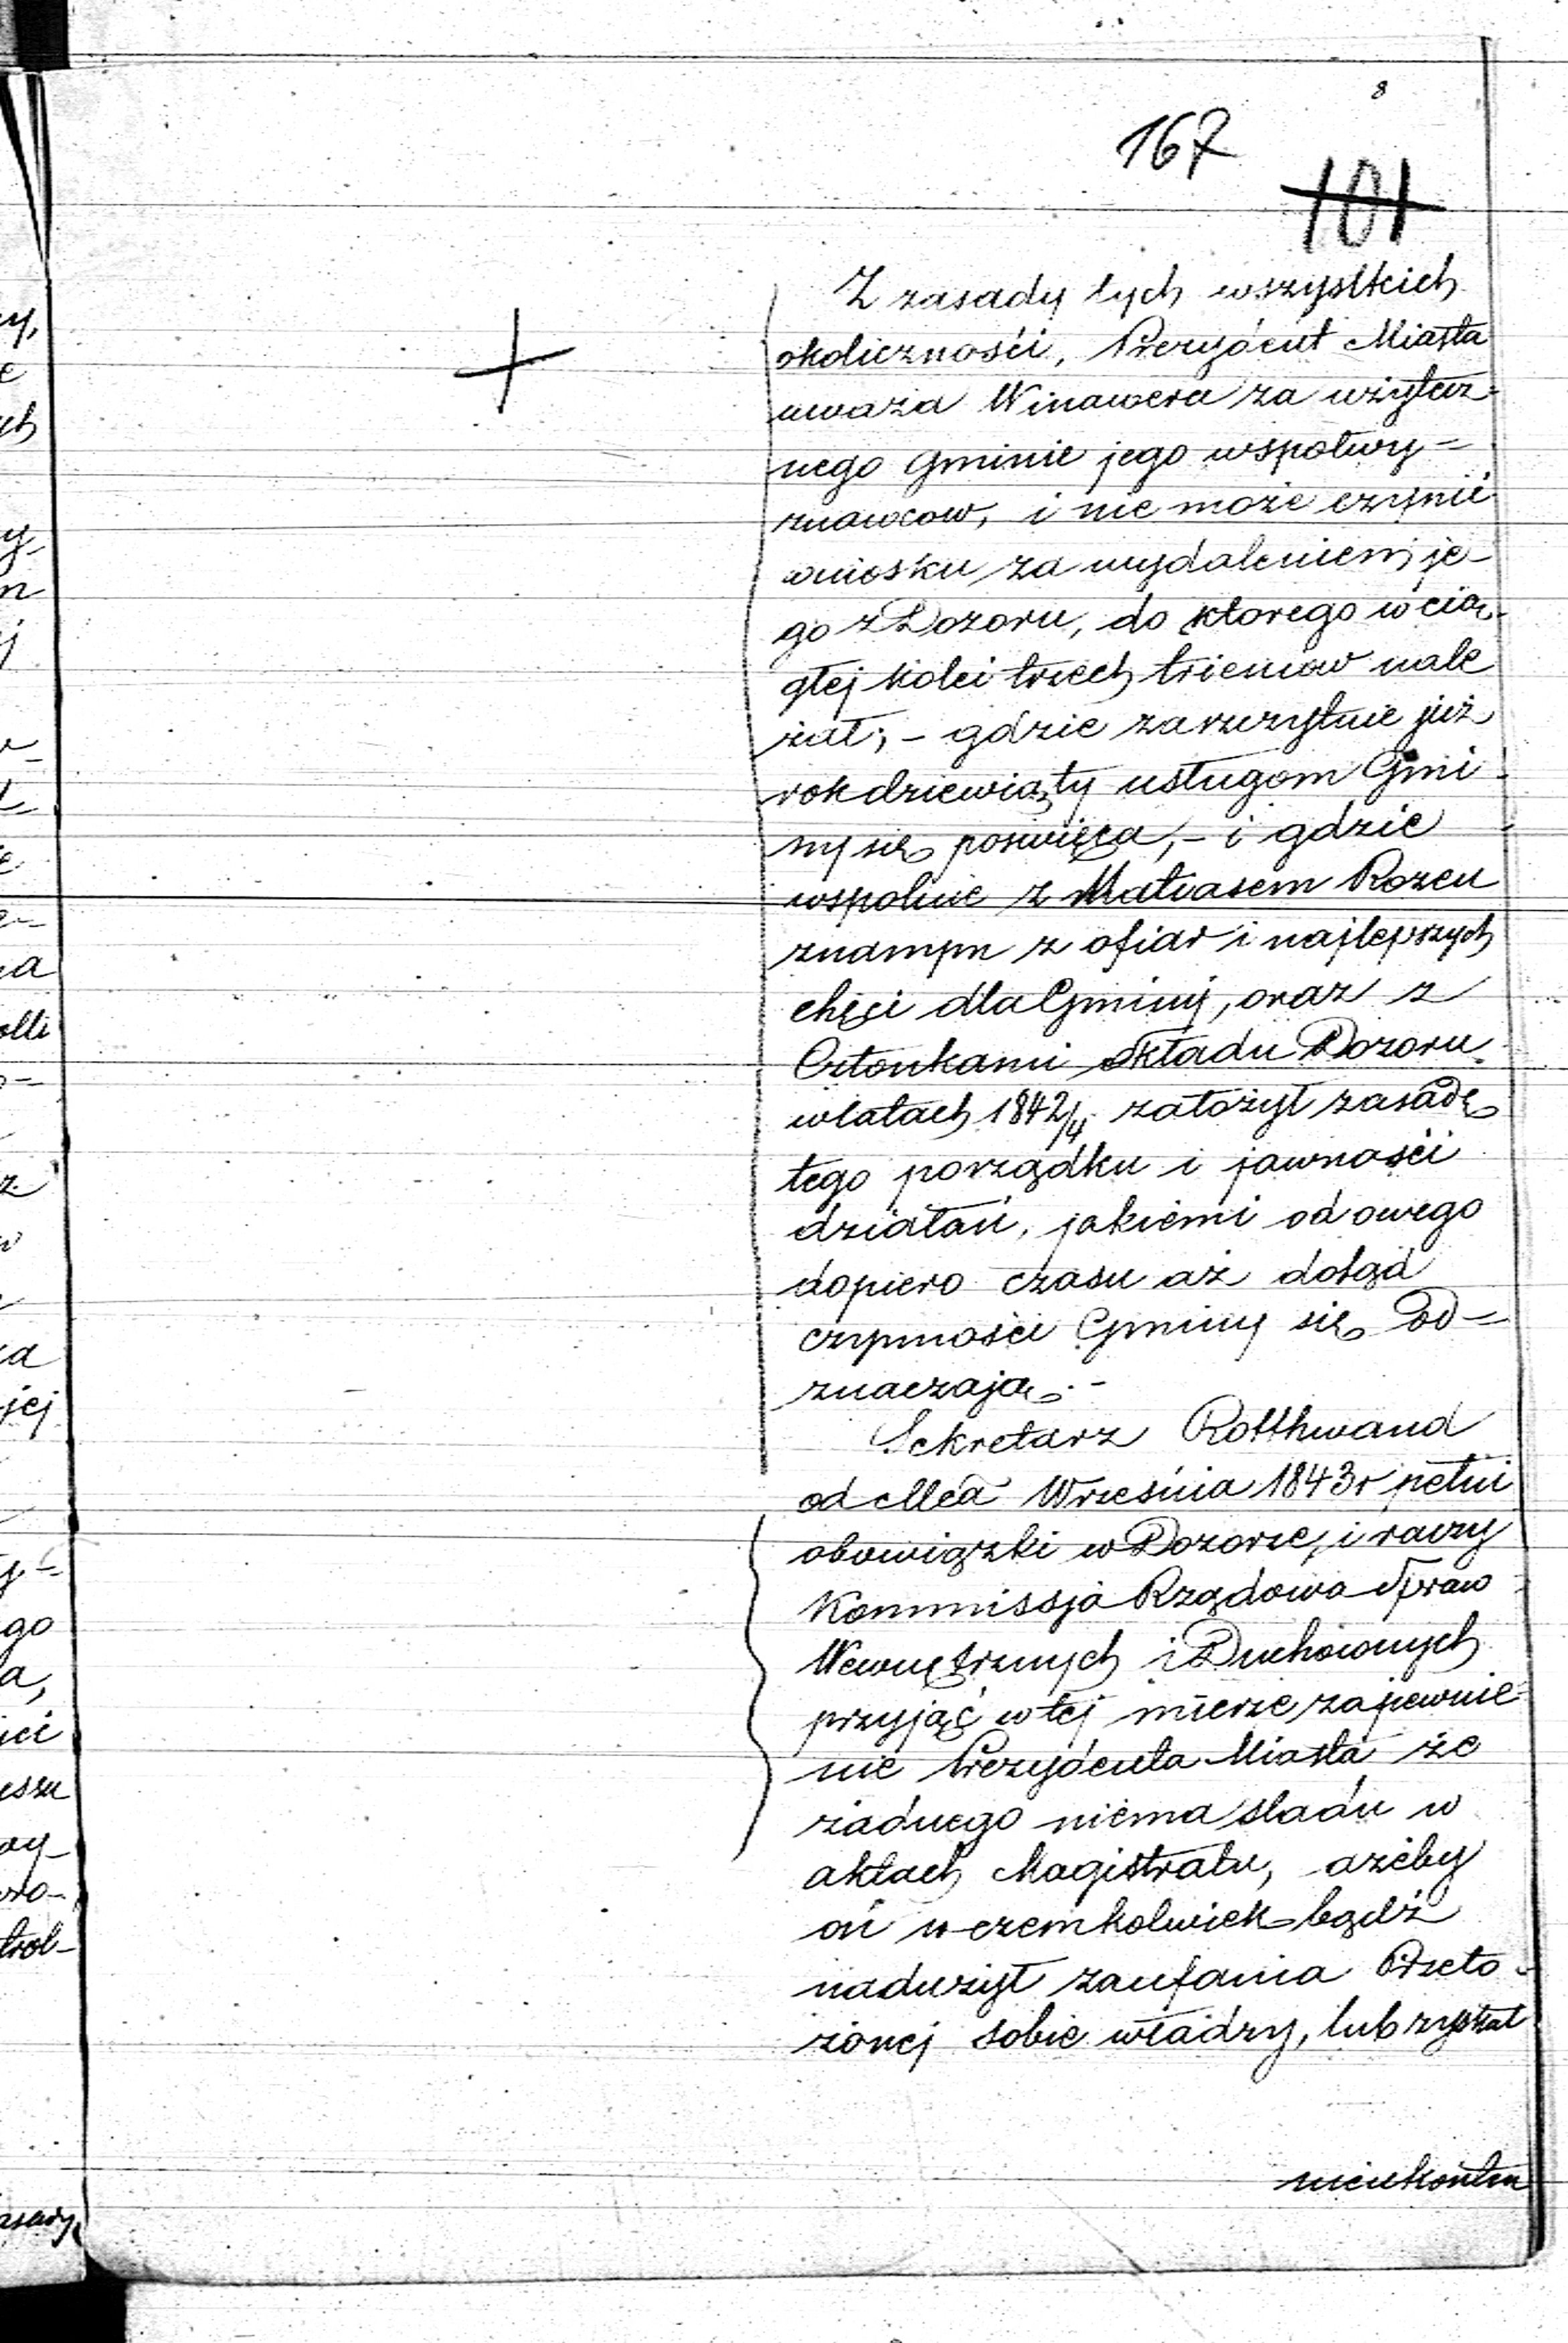 8
167
101
Z zasady tych wszystkich
okolicznośći, Prezydent Miasta
uważa Winawera za użytecz-
nego Gminie jego wspołwy=
znawcow, i nie może czynić
wniosku za wydaleniem je-
go z Dozoru, do ktorego w cią-
głej kolei trzech trienniow nale
żał; - gdzie zaszczytnie już
rok dziewiąty usługom Gmi-
ny się poswięca, - i gdzie
wspolnie z Matiasem Rozen
znanym z ofiar i najlepszych
chęci dla Gminy, oraz z
Członkami składu Dozoru
w latach 1842/4 założył zasadę
tego porządku i jawnośći
działań, jakiemi od owego
dopiero czasu aż dotąd
czynnośći Gminy się od=
znaczają. -
Sekretarz Rotthwand
od Mca Wrzesnia 1843 r pełni
obowiązki w Dozorze, i raczy
Kommissja Rządowa Spraw
Wewnętrznych i Duchownych
przyjąć w tej mierze zapewnie-
nie Prezydenta Miasta że
żadnego niema sladu w
aktach Magistratu, ażeby
on w czemkolwiek bądź
nadużył zaufania Przeło-
żonej sobie władzy, lub zyskał
nieukonten
y,
e
ych
y-
n
j
e
a
olli
z
w
a
jej
y=
go
a,
ieci
uszu
ay-
ro-
trol-
asady